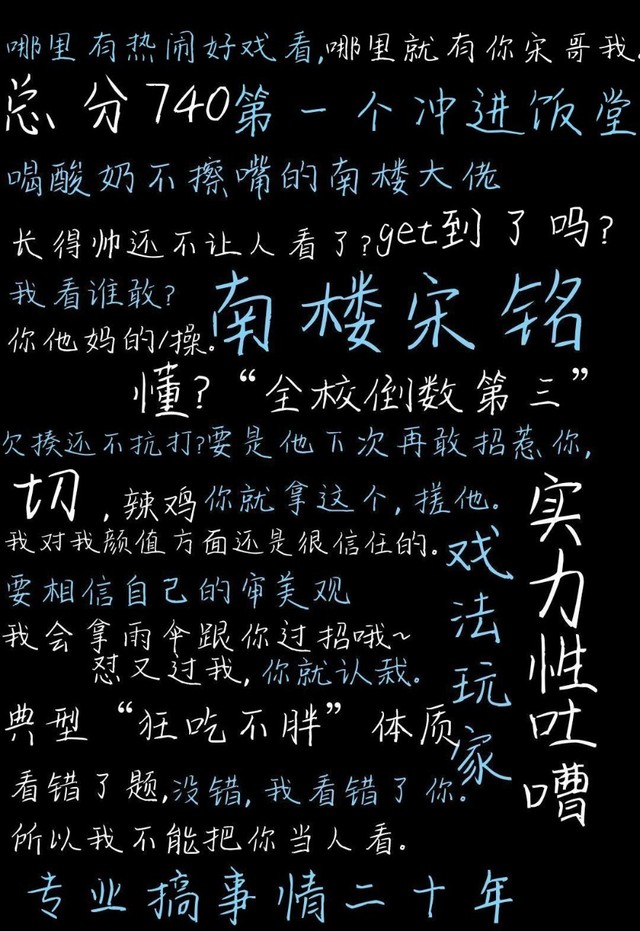 哪里有热闹好戏看,哪里就有你宋哥我.
总分740第一个冲进饭堂
喝酸奶不擦嘴的南楼大佬
长得帅还不让人看了?get到了吗?
我看谁敢?
南楼宋铭
你他妈的/操。
懂?“全校倒数第三”
欠揍还不抗打?要是他下次再敢招惹你,
切,辣鸡你就拿这个,搓他。
我对我颜值方面还是很信任的。
要相信自己的审美观
我会拿雨伞跟你过招哦~
怼又过我,你就认栽。
典型“狂吃不胖”体质
看错了题,没错,我看错了你。
所以我不能把你当人看。
戏法玩家
实力性吐嘈
专业搞事情二十年